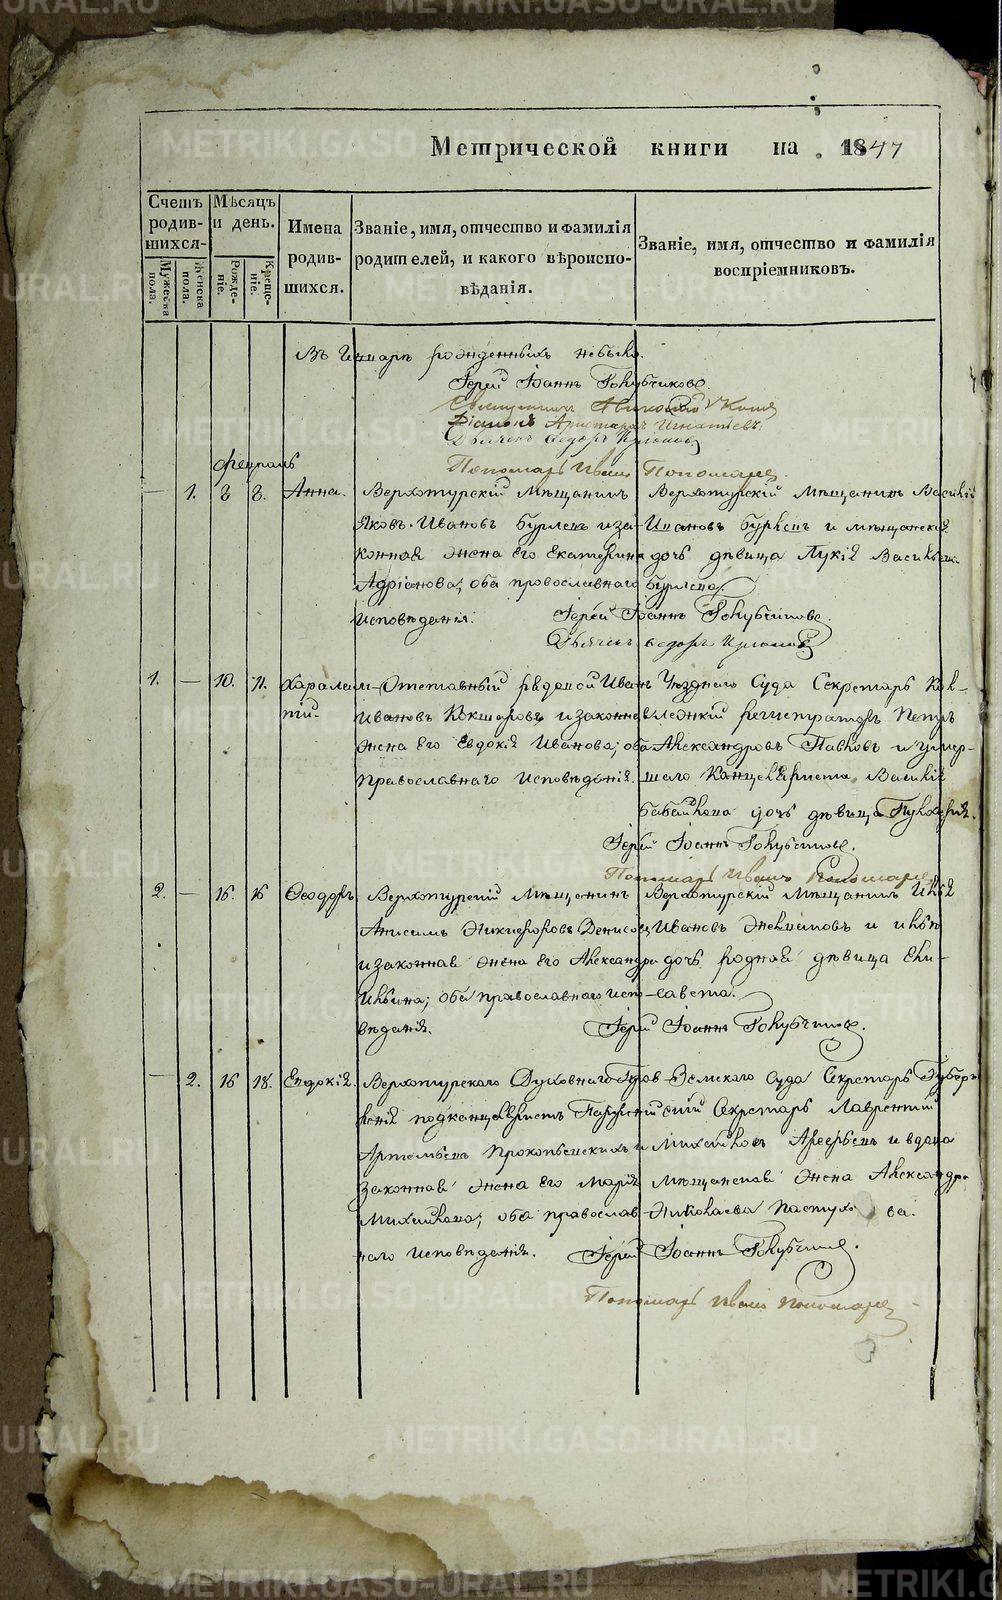 Метрической книги на 1847
Счетъ родив-шихся.
Мужеска пола.
Женска пола.
Мѣсяцъ и день.
Рожде-ніе.
Креще-ніе.
Имена родив-шихся.
Званіе, имя, отчество и фамилія родителей, и какого вѣроиспо-вѣданія.
Званіе, имя, отчество и фамилія воспріемниковъ.
Въ Генварѣ рожденныхъ небыло.
Іерей Іоаннъ Голубчиковъ.
Діаконъ Аристархъ Игнатіевъ.
Пономарь Иванъ Пономарев
февраль
— 1. 2 2. Анна. Верхотурскій Мѣщанинъ
Яковъ Ивановъ Бурлевъ и за-
конная жена его Екатерина
Адріанова; оба православнаго
исповѣданія.
Верхотурскій Мѣщанинъ Василій
Ивановъ Бурлевъ и мѣщанская
дочь дѣвица Васильева
Бурлева.
Іерей Іоаннъ Голубчиковъ.
1. — 10. 11. Харалам-
пій.
Отставный рядовой Иванъ
Ивановъ Кокшаровъ и законная
жена его Евдокія Иванова; оба
Православнаго исповѣданія.
Уѣзднаго Суда Секретарь Кол-
лежскій регистраторъ Петръ
Александровъ Павловъ и умер-
шаго Канцеляриста Василія
дочь дѣвица
Іерей Іоаннъ Голубчиковъ.
Пономарь Иванъ Пономарев
2. — 15. 16 Ѳеодоръ. Верхотурскій Мѣщанинъ
Анисимъ Никифоровъ Денисов
и законная жена его Александра
Ильина; оба православнаго испо-
вѣданія.
Верхотурскій Мѣщанинъ Илья
Ивановъ и ильи
дочь родная дѣвица Ели-
савета.
Іерей Іоаннъ Голубчиковъ.
— 2. 16 18. Евдокія. Верхотурскаго Духовнаго Прав-
ленія подканцеляристъ
Артемьевъ Прокопьевскихъ и
законная жена его Марія
Михайлова; оба православ-
наго исповѣданія.
Земскаго Суда Секретарь Губерн-
скій Секретарь Лаврентій
Михайловъ Арефьевъ и вдова
Мѣщанская жена Александра
Николаева Пастухова.
Іерей Іоаннъ Голубчиковъ.
Пономарь Иванъ Пономарев
METRIKI.GASO-URAL.RU